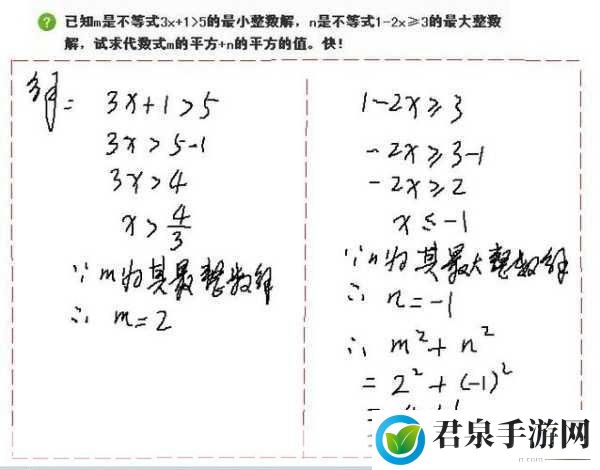 已知m是不等式3x+1>5的最小整数解，n是不等式1-2x≥3的最大整数
解，试求代数式m的平方+n的平方的值。快！
解：3x+1>5
3x>5-1
3x>4
x>4/3
∵m为其最整数解
∴ m=2
1-2x≥3
-2x≥3-1
-2x≥2
x≤-1
∵n为其最大整数解
∴ n=-1
∴ m²+n²
=2²+(-1)²
君泉手游网